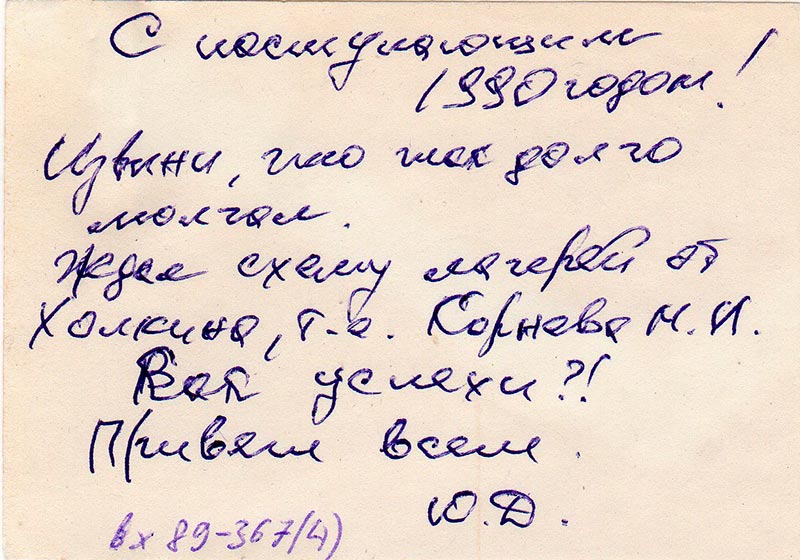 С наступающим
1990 годом!
Извини, что так долго
молчал.
Ждал схему лагерей от
Холкина, т-е. Корнева Н.И.
Как успехи?!
Привет всем.
Ю.Д.
вх 89-367/4)